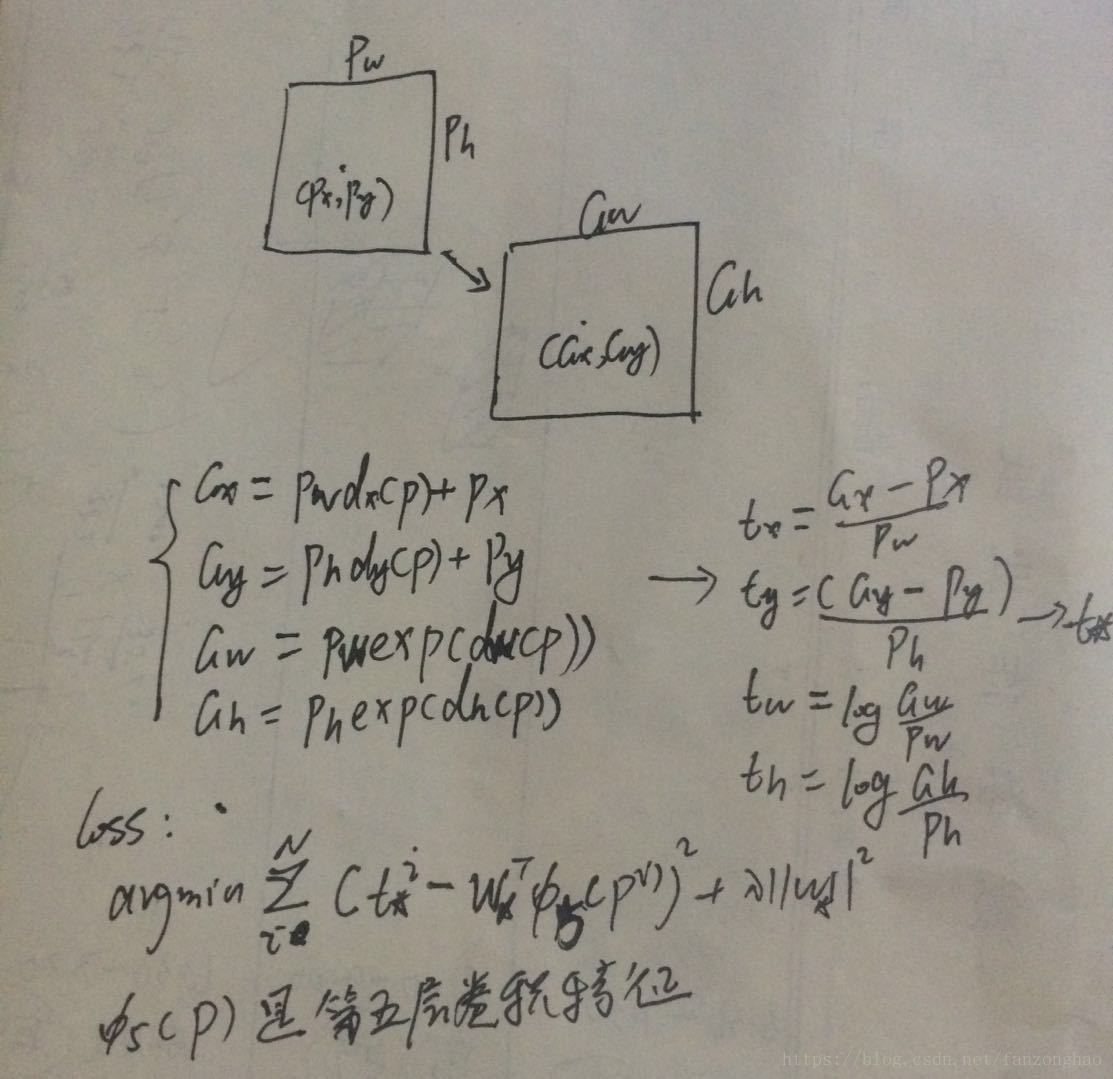 Pw
Ph
(Px,Py)
Gw
Gh
(Gx,Gy)
Gx = Pwdx(P)+Px
Gy = Phdy(P)+Py
Gw = Pwexp(dw(P))
Gh = Phexp(dh(P))
→
tx = (Gx-Px)/Pw
ty = (Gy-Py)/Ph → t*
tw = log Gw/Pw
th = log Gh/Ph
loss:
argmin ∑ N i (t*^i - W*^T ϕ5(P^i))^2 + λ||W*||^2
ϕ5(P) 是第五层卷积特征
https://blog.csdn.net/fanzonghao